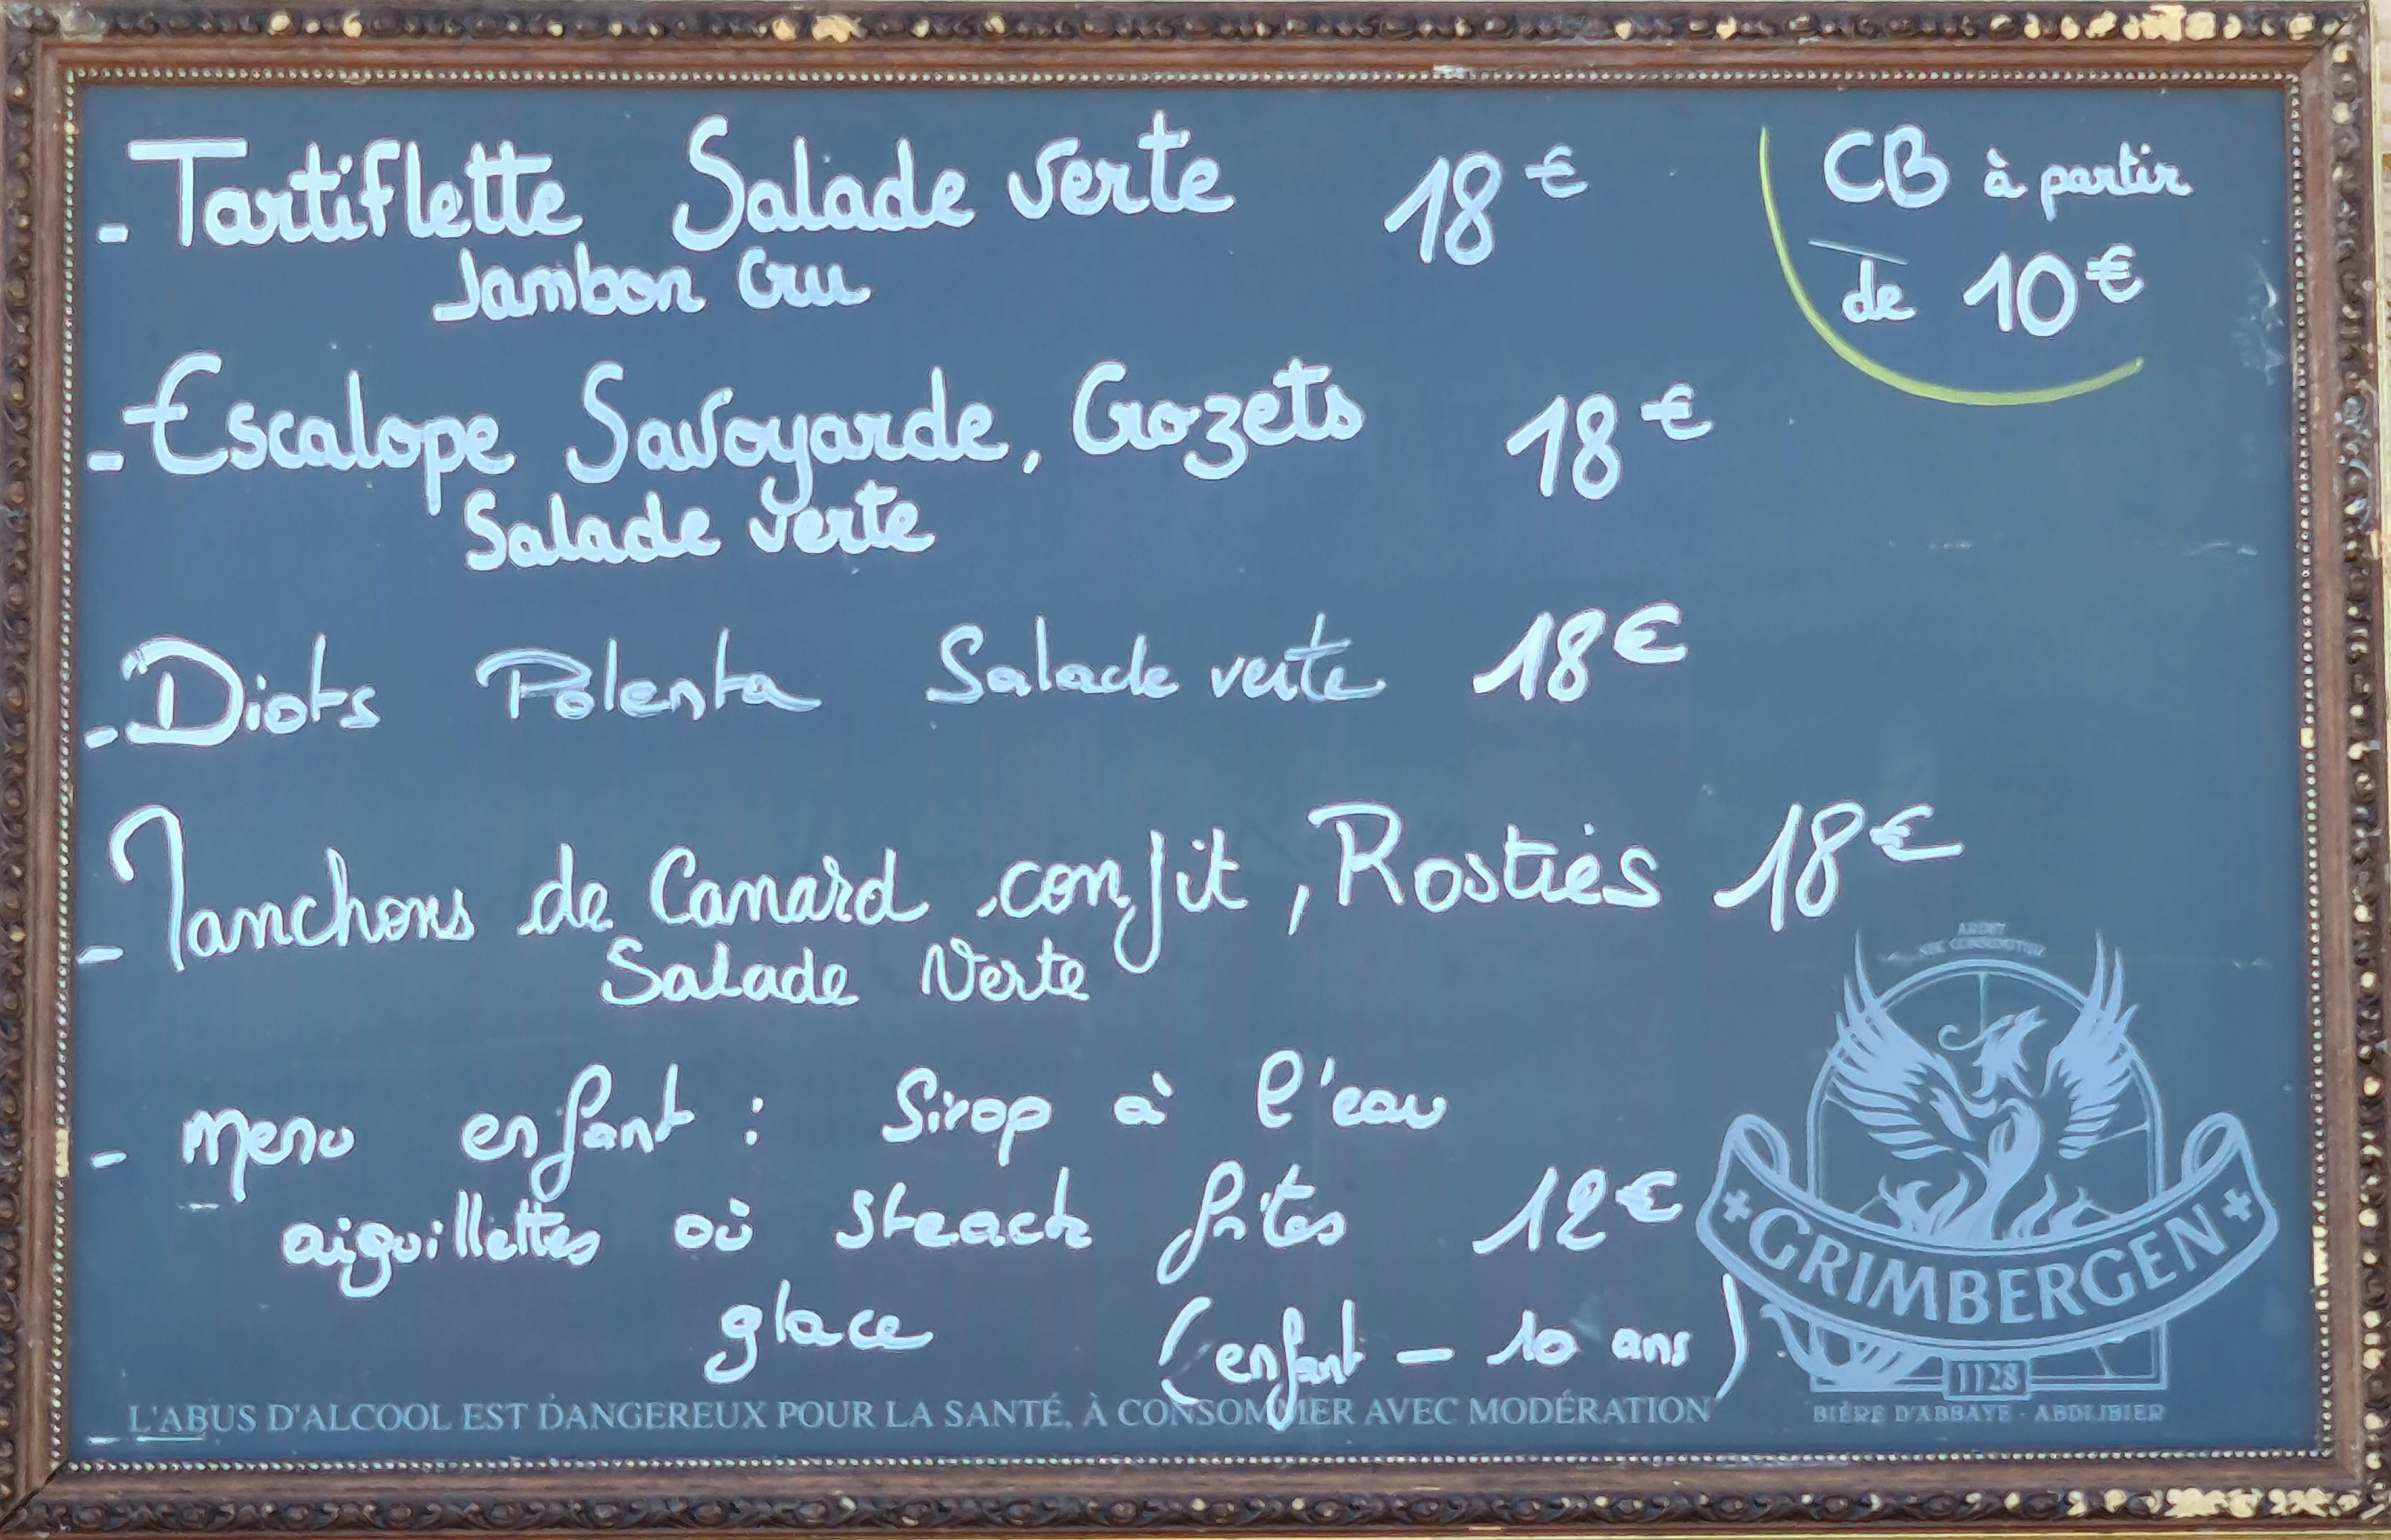 - Tartiflette Salade verte 18€
Jambon Cru
CB à partir
de 10€
- Escalope Savoyarde, Crozets 18€
Salade verte
- Diots Polenta Salade verte 18€
- Manchons de Canard confit, Rosties 18€
Salade Verte
- Menu enfant : Sirop à l'eau
aiguillettes où steack frites 12€
glace (enfant - 10 ans)
ARDET
NEC CONSUMITUR
GRIMBERGEN
1128
BIÈRE D'ABBAYE - ABDIJBIER
L'ABUS D'ALCOOL EST DANGEREUX POUR LA SANTÉ, À CONSOMMER AVEC MODÉRATION